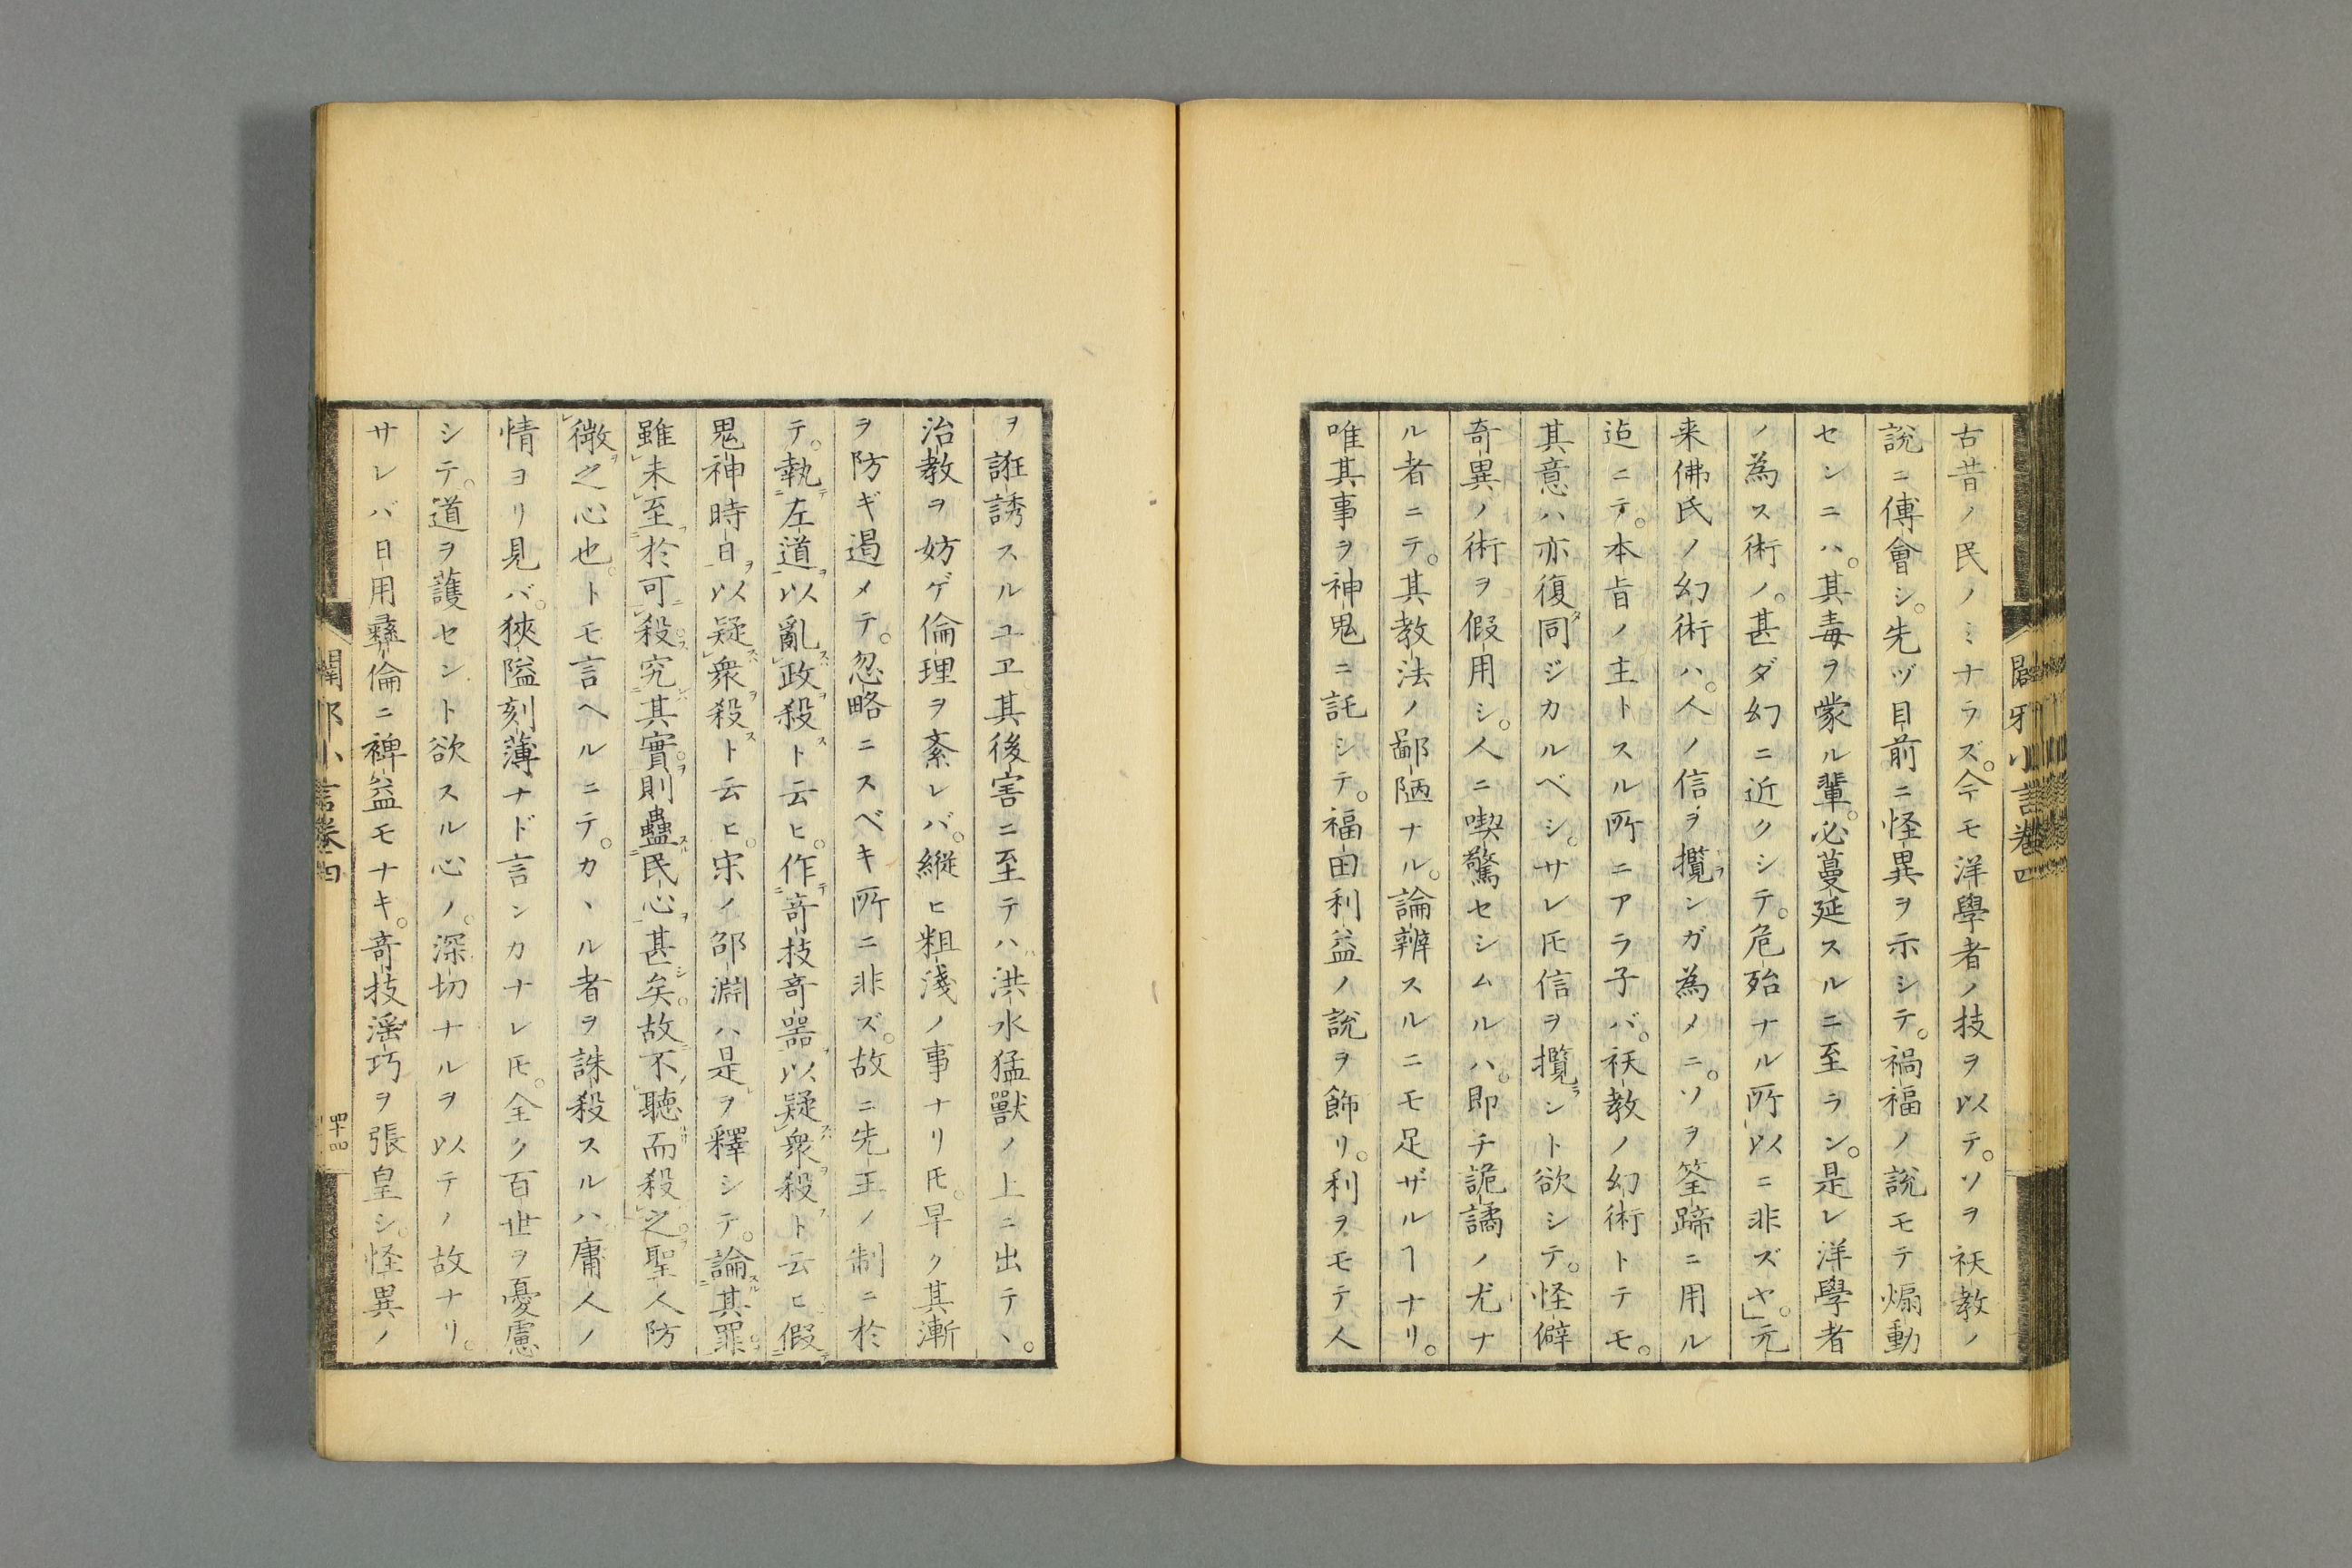 古昔ノ民ノミナラズ。今モ洋學者ノ技ヲ以テ。ソヲ祅教ノ
說ニ傅會シ。先ヅ目前ニ怪異ヲ示シテ。禍福ノ說モテ煽動
センニハ。其毒ヲ蒙ル輩。必蔓延スルニ至ラン。是レ洋學者
ノ為ス術ノ。甚ダ幻ニ近クシテ。危殆ナル所以ニ非ズヤ。」元
来佛氏ノ幻術ハ。人ノ信ヲ攬ンガ為メニ。ソヲ筌蹄ニ用ル
迠ニテ。本旨ノ主トスル所ニアラ子バ。祅教ノ幻術トテモ。
其意ハ亦復同ジカルベシ。サレ𪜈信ヲ攬ント欲シテ。怪僻
奇異ノ術ヲ假用シ。人ニ喫驚セシムルハ。即チ詭譎ノ尤ナ
ル者ニテ。其教法ノ鄙陋ナル。論辨スルニモ足ザルヿナリ。
唯其事ヲ神鬼ニ託シテ。福田利益ノ說ヲ飾リ。利ヲモテ人
ヲ誑誘スルユヱ其後害ニ至テハ洪水猛獸ノ上ニ出テヽ。
治教ヲ妨ゲ倫理ヲ紊レバ。縦ヒ粗淺ノ事ナリ𪜈。早ク其漸
ヲ防ギ遏メテ。忽略ニスベキ所ニ非ズ。故ニ先王ノ制ニ於
テ。執左道以亂政殺ト云ヒ。作奇技奇器以疑衆殺ト云ヒ假
鬼神時日以疑衆殺ト云ヒ。宋ノ邵淵ハ是ヲ釋シテ。論其罪
雖未至於可殺。究其實則蠱民心甚矣。故不聽而殺之。聖人防
微之心也。トモ言ヘルニテ。カヽル者ヲ誅殺スルハ庸人ノ
情ヨリ見バ。狹隘刻薄ナド言ンカナレ𪜈。全ク百世ヲ憂慮
シテ。道ヲ護セント欲スル心ノ。深切ナルヲ以テノ故ナリ。
サレバ日用彝倫ニ裨益モナキ。奇技滛巧ヲ張皇シ。怪異ノ
闢邪小言卷四
四十四